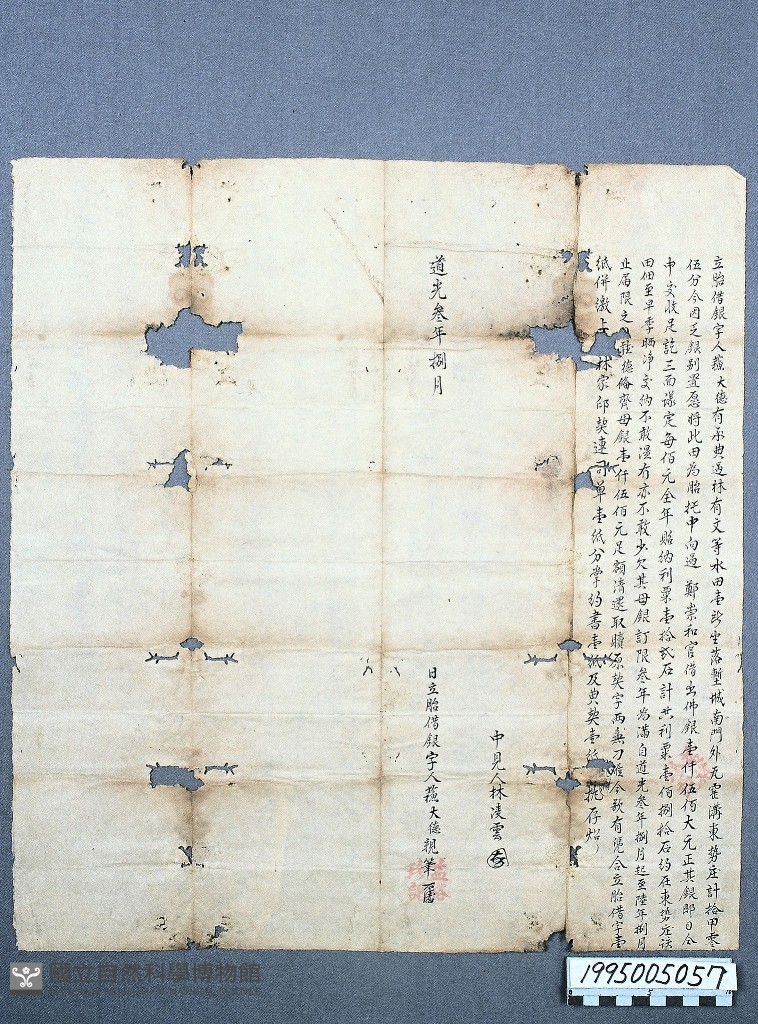 立胎借銀字人蘇大德有承典過林有文等水田壹所坐落塹城南門外九靈溝東勢庄計拾甲零
伍分今因乏銀別置愿將此田為胎托中向過　鄭崇和官借出佛銀壹仟伍佰大元正其銀即日仝
中交收足訖三面議定每佰元全年貼納利粟壹拾弍石計共利粟壹佰捌拾石約在東勢庄該
田佃至早季晒净交納不敢濕冇亦不敢少欠其母銀訂限叁年為滿自道光叁年捌月起至陸年捌月
止屆限之 德備齊母銀壹仟伍佰元足額清還取贖原契字両無刁难今欲有憑合立胎借字壹
紙併繳上 林家印契連司單壹紙分掌約書壹紙及典契壹紙 執存炤
中見人林淩雲
道光叁年捌月　日立胎借銀字人 大德親筆
國立自然科學博物館
1995005057